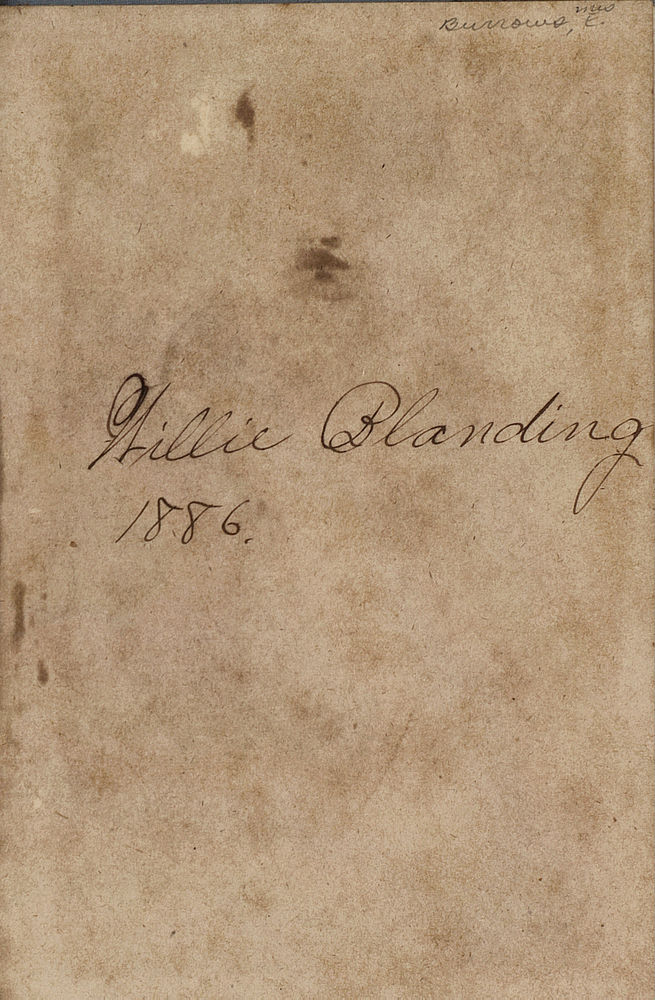 Burrows, Mrs E.
Willie Blanding
1886.